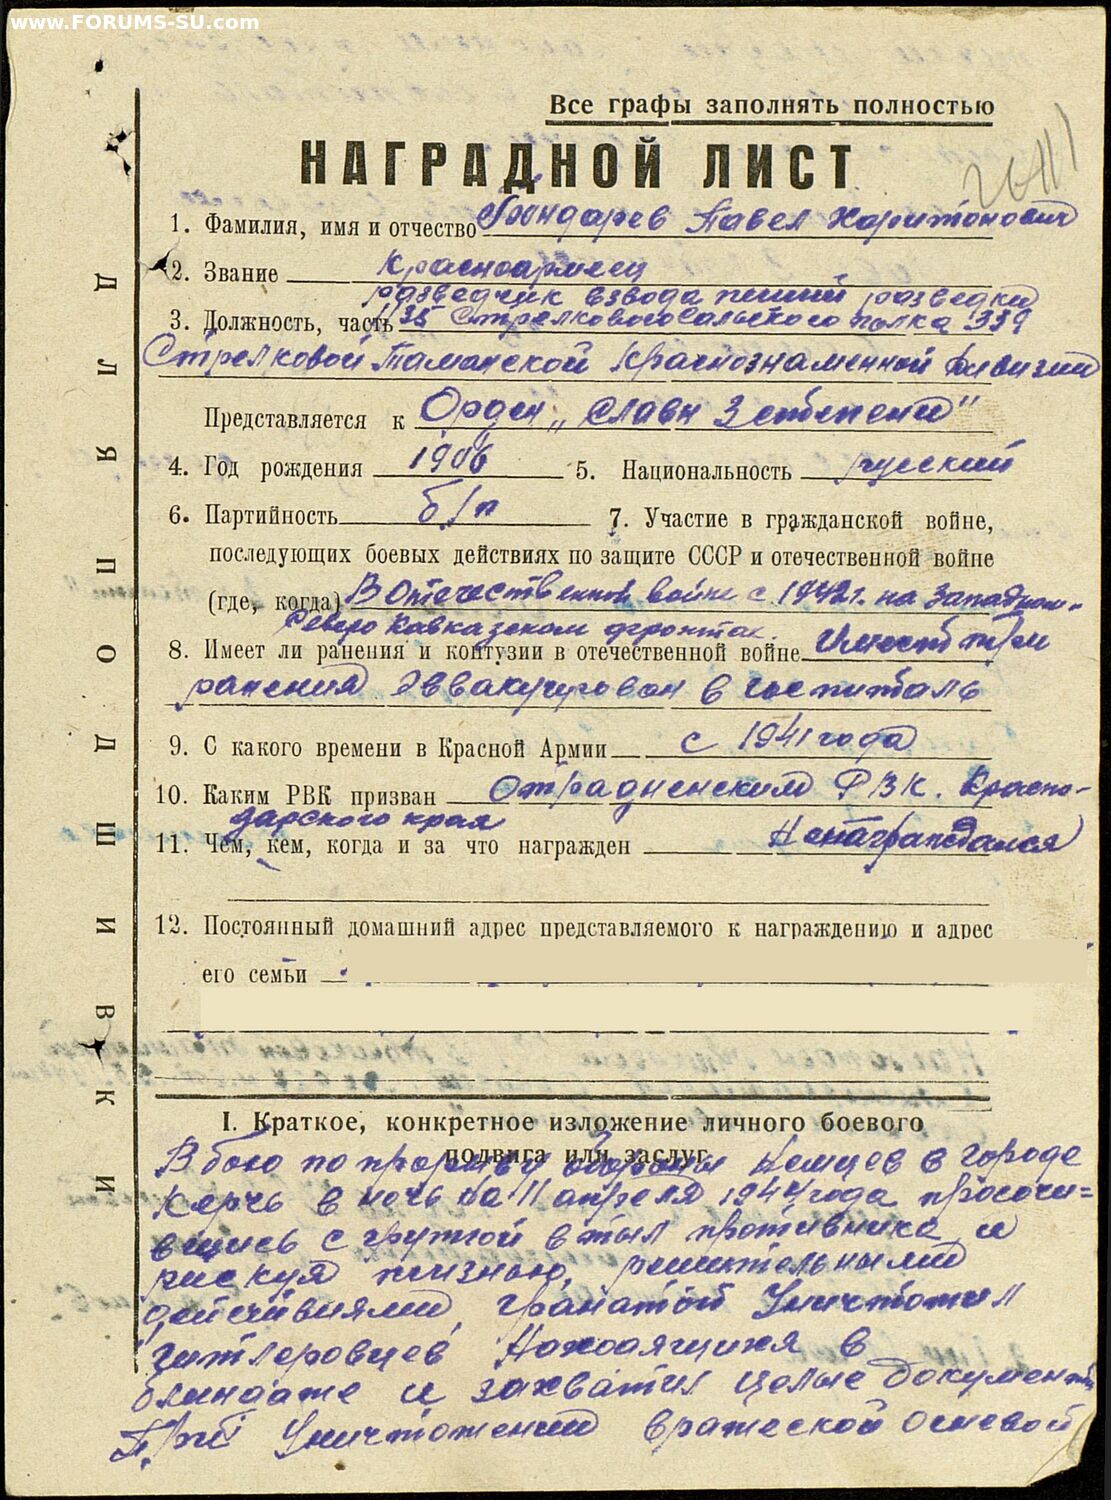 www.FORUMS-SU.com
Все графы заполнять полностью
НАГРАДНОЙ ЛИСТ
1. Фамилия, имя и отчество Бондарев Павел Харитонович
2. Звание Красноармеец
разведчик взвода пешей разведки
3. Должность, часть 1135 Стрелкового Сальского полка 339
Стрелковой Таманской Краснознаменной дивизии
Представляется к Орден „Славы 3 степени"
4. Год рождения 1906 5. Национальность русский
6. Партийность б/п 7. Участие в гражданской войне,
последующих боевых действиях по защите СССР и отечественной войне
(где, когда) В Отечественной войне с 1942 г. на Западном-
Северо Кавказском фронтах.
8. Имеет ли ранения и контузии в отечественной войне Имеет три
ранения эввакуирован в госпиталь
9. С какого времени в Красной Армии с 1941 года
10. Каким РВК призван Отрадненским РВК. Красно-
дарского края
11. Чем, кем, когда и за что награжден Ненаграждался
12. Постоянный домашний адрес представляемого к награждению и адрес
его семьи
I. Краткое, конкретное изложение личного боевого
подвига или заслуг
В бою по прорыву обороны Немцев в городе
Керчь в ночь на 11 апреля 1944 года просочи=
вшись с групой в тыл противника и
рискуя жизнью, решительными
действиями, гранатой Уничтожил
гитлеровцев Находящихя в
блиндаже и захватил целые документы
При Уничтожении вражеской огневой
ДЛЯ ПОДШИВКИ